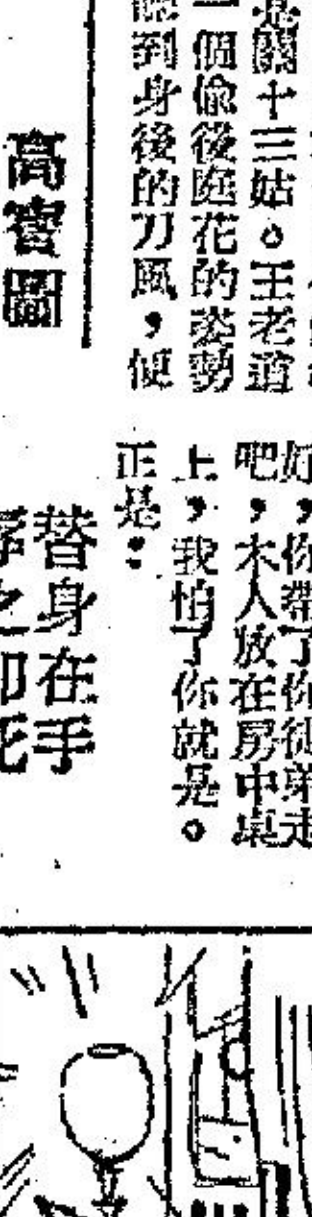 是關十三姑。王老道
一個偷後庭花的姿勢
到身後的刀風，便
高寶圖
好，你帶了你徒弟走
吧，木人放在房中桌
上，我怕了你就是。
正是：
替身在手